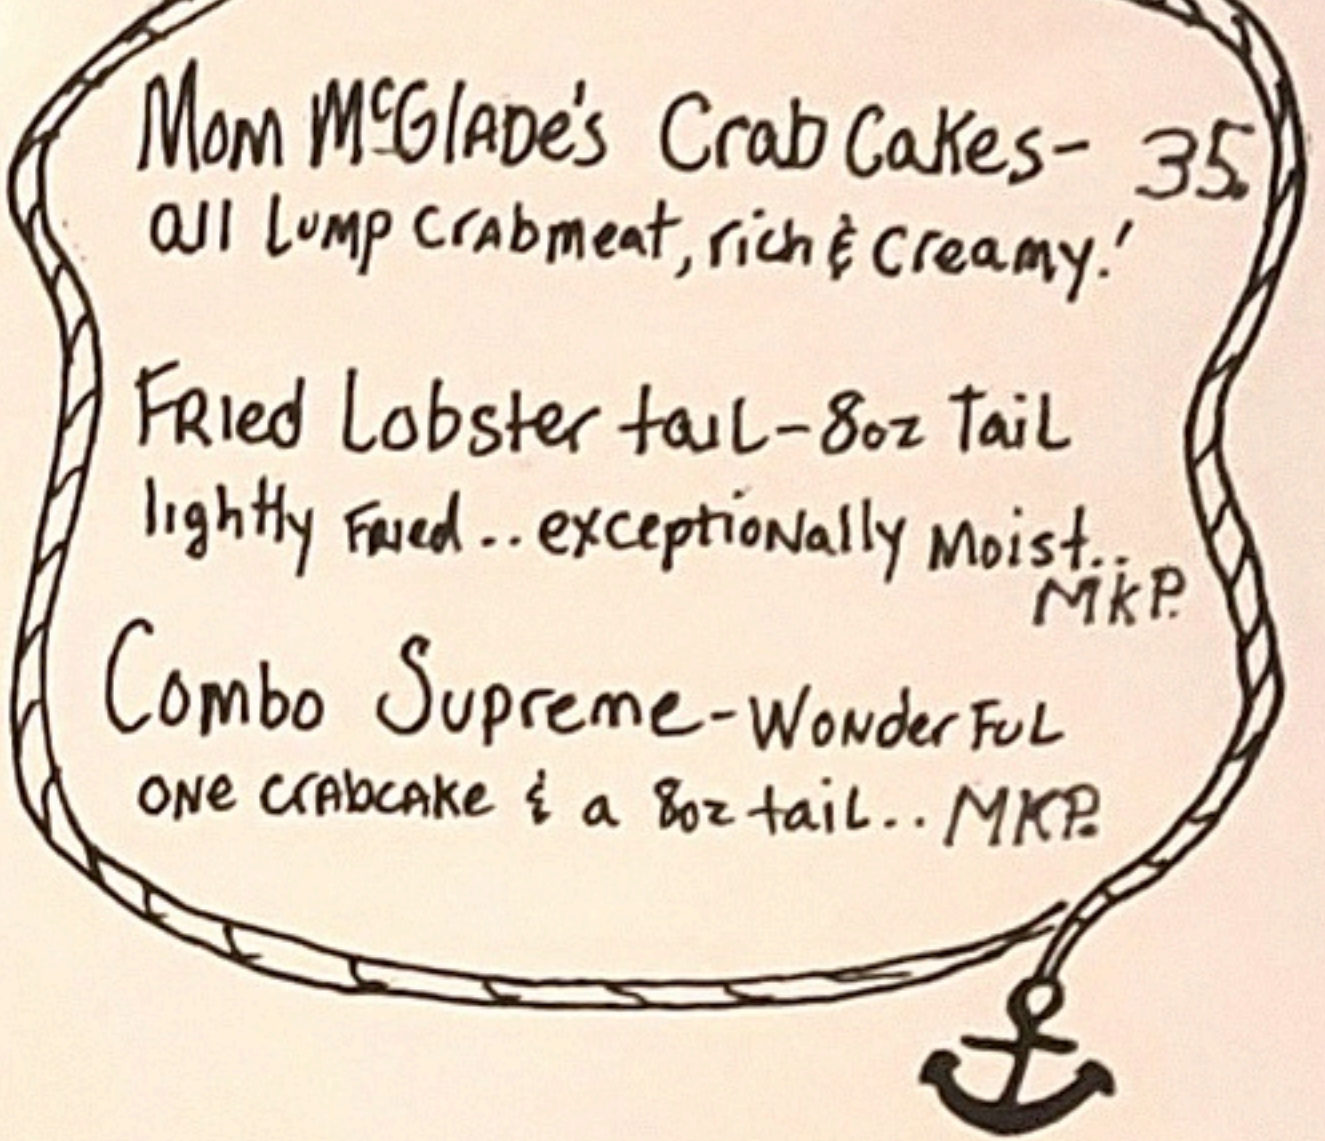 Mom McGlade's Crab Cakes- 35.
all lump crabmeat, rich & creamy!
Fried Lobster tail-8oz Tail
lightly Fried.. exceptionally Moist..
MKP.
Combo Supreme-Wonderful
one crabcake & a 8oz tail.. MKP.